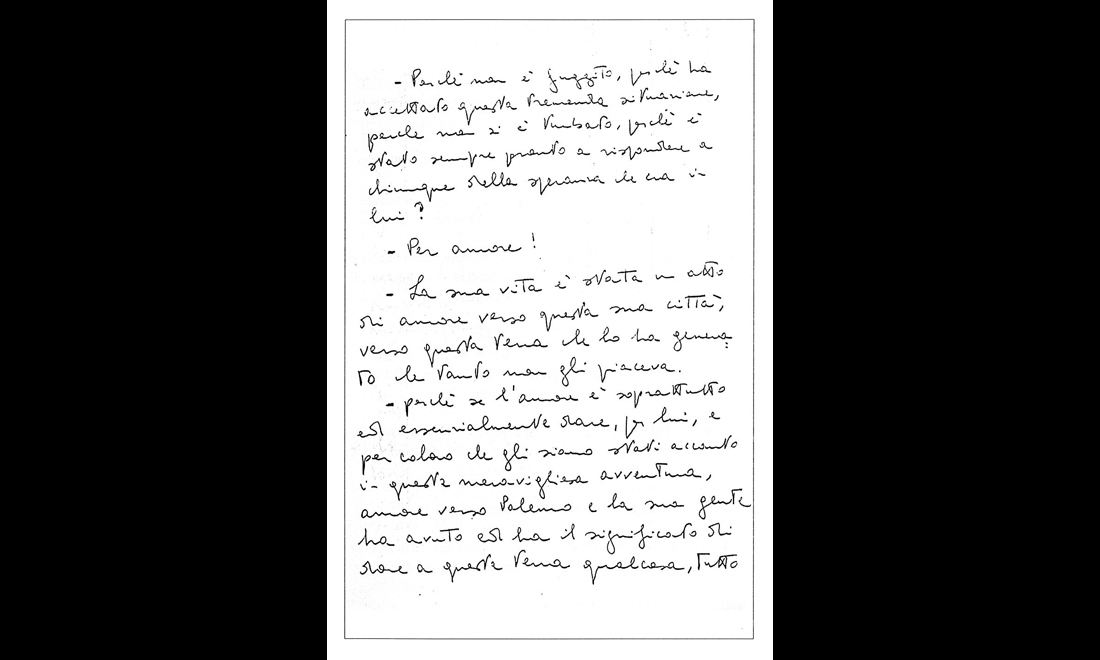 - Perché non è fuggito, perché ha
accettato questa tremenda situazione,
perché non si è turbato, perché è
stato sempre pronto a rispondere a
chiunque della speranza che era in
lui?
- Per amore!
- La sua vita è stata un atto
di amore verso questa sua città,
verso questa terra che lo ha genera
to che tanto non gli piaceva.
- perché se l'amore è soprattutto
ed essenzialmente dare, per lui, e
per coloro che gli siamo stati accanto
in questa meravigliosa avventura,
amore verso Palermo e la sua gente
ha avuto ed ha il significato di
dare a questa terra qualcosa, tutto